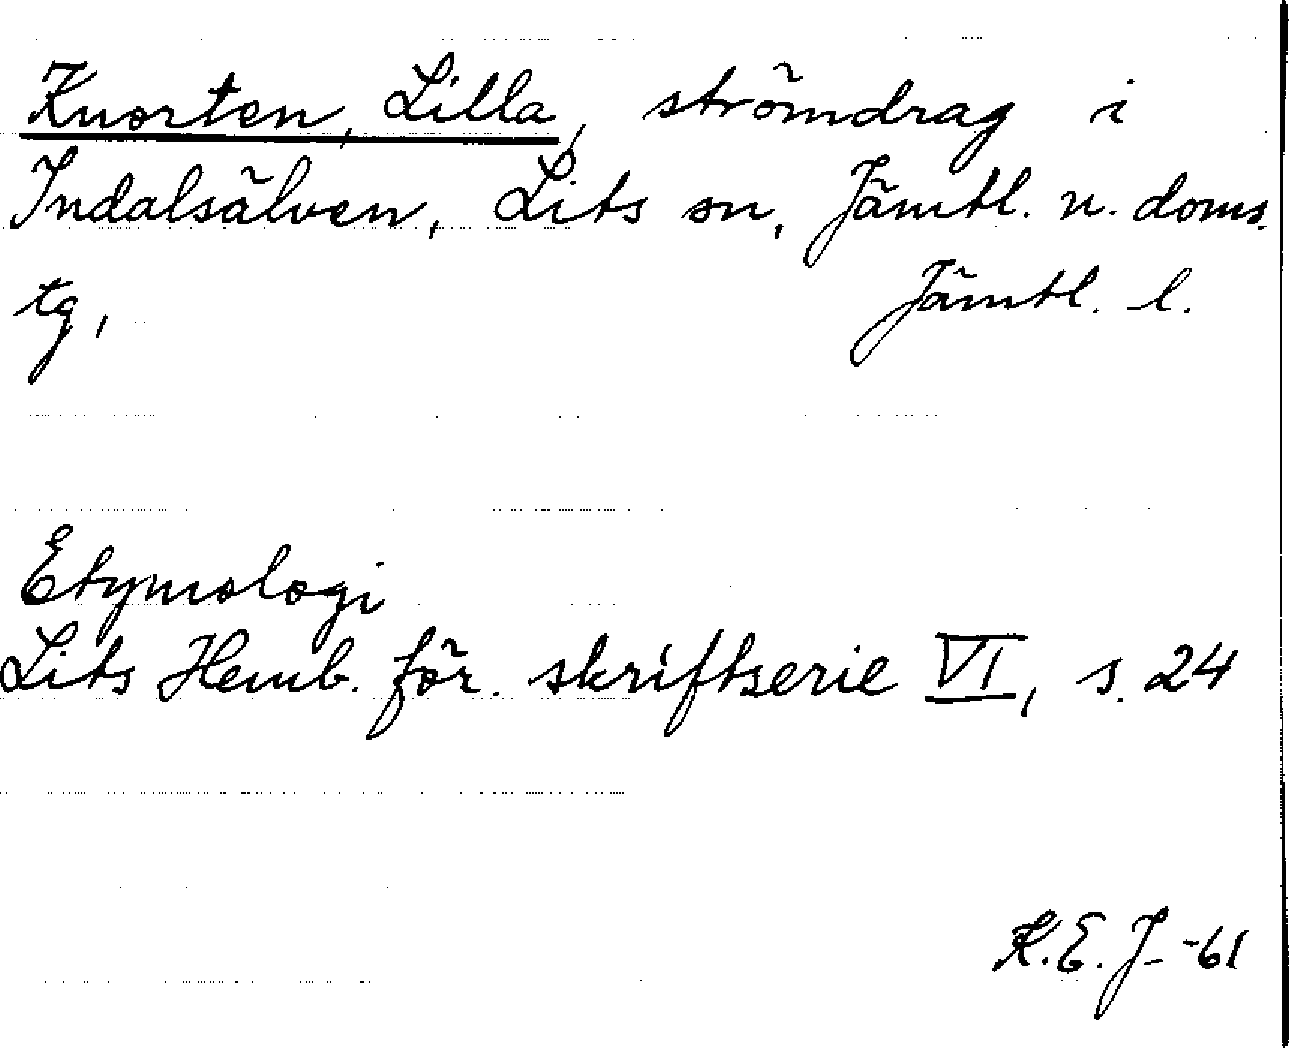 Knorten, Lilla, strömdrag i
Indalsälven, Lits sn, Jämtl. n. doms.
tg,
Jämtl. l.
Etymologi
Lits Hemb. för. skriftserie VI, s. 24
K.E.J. -61